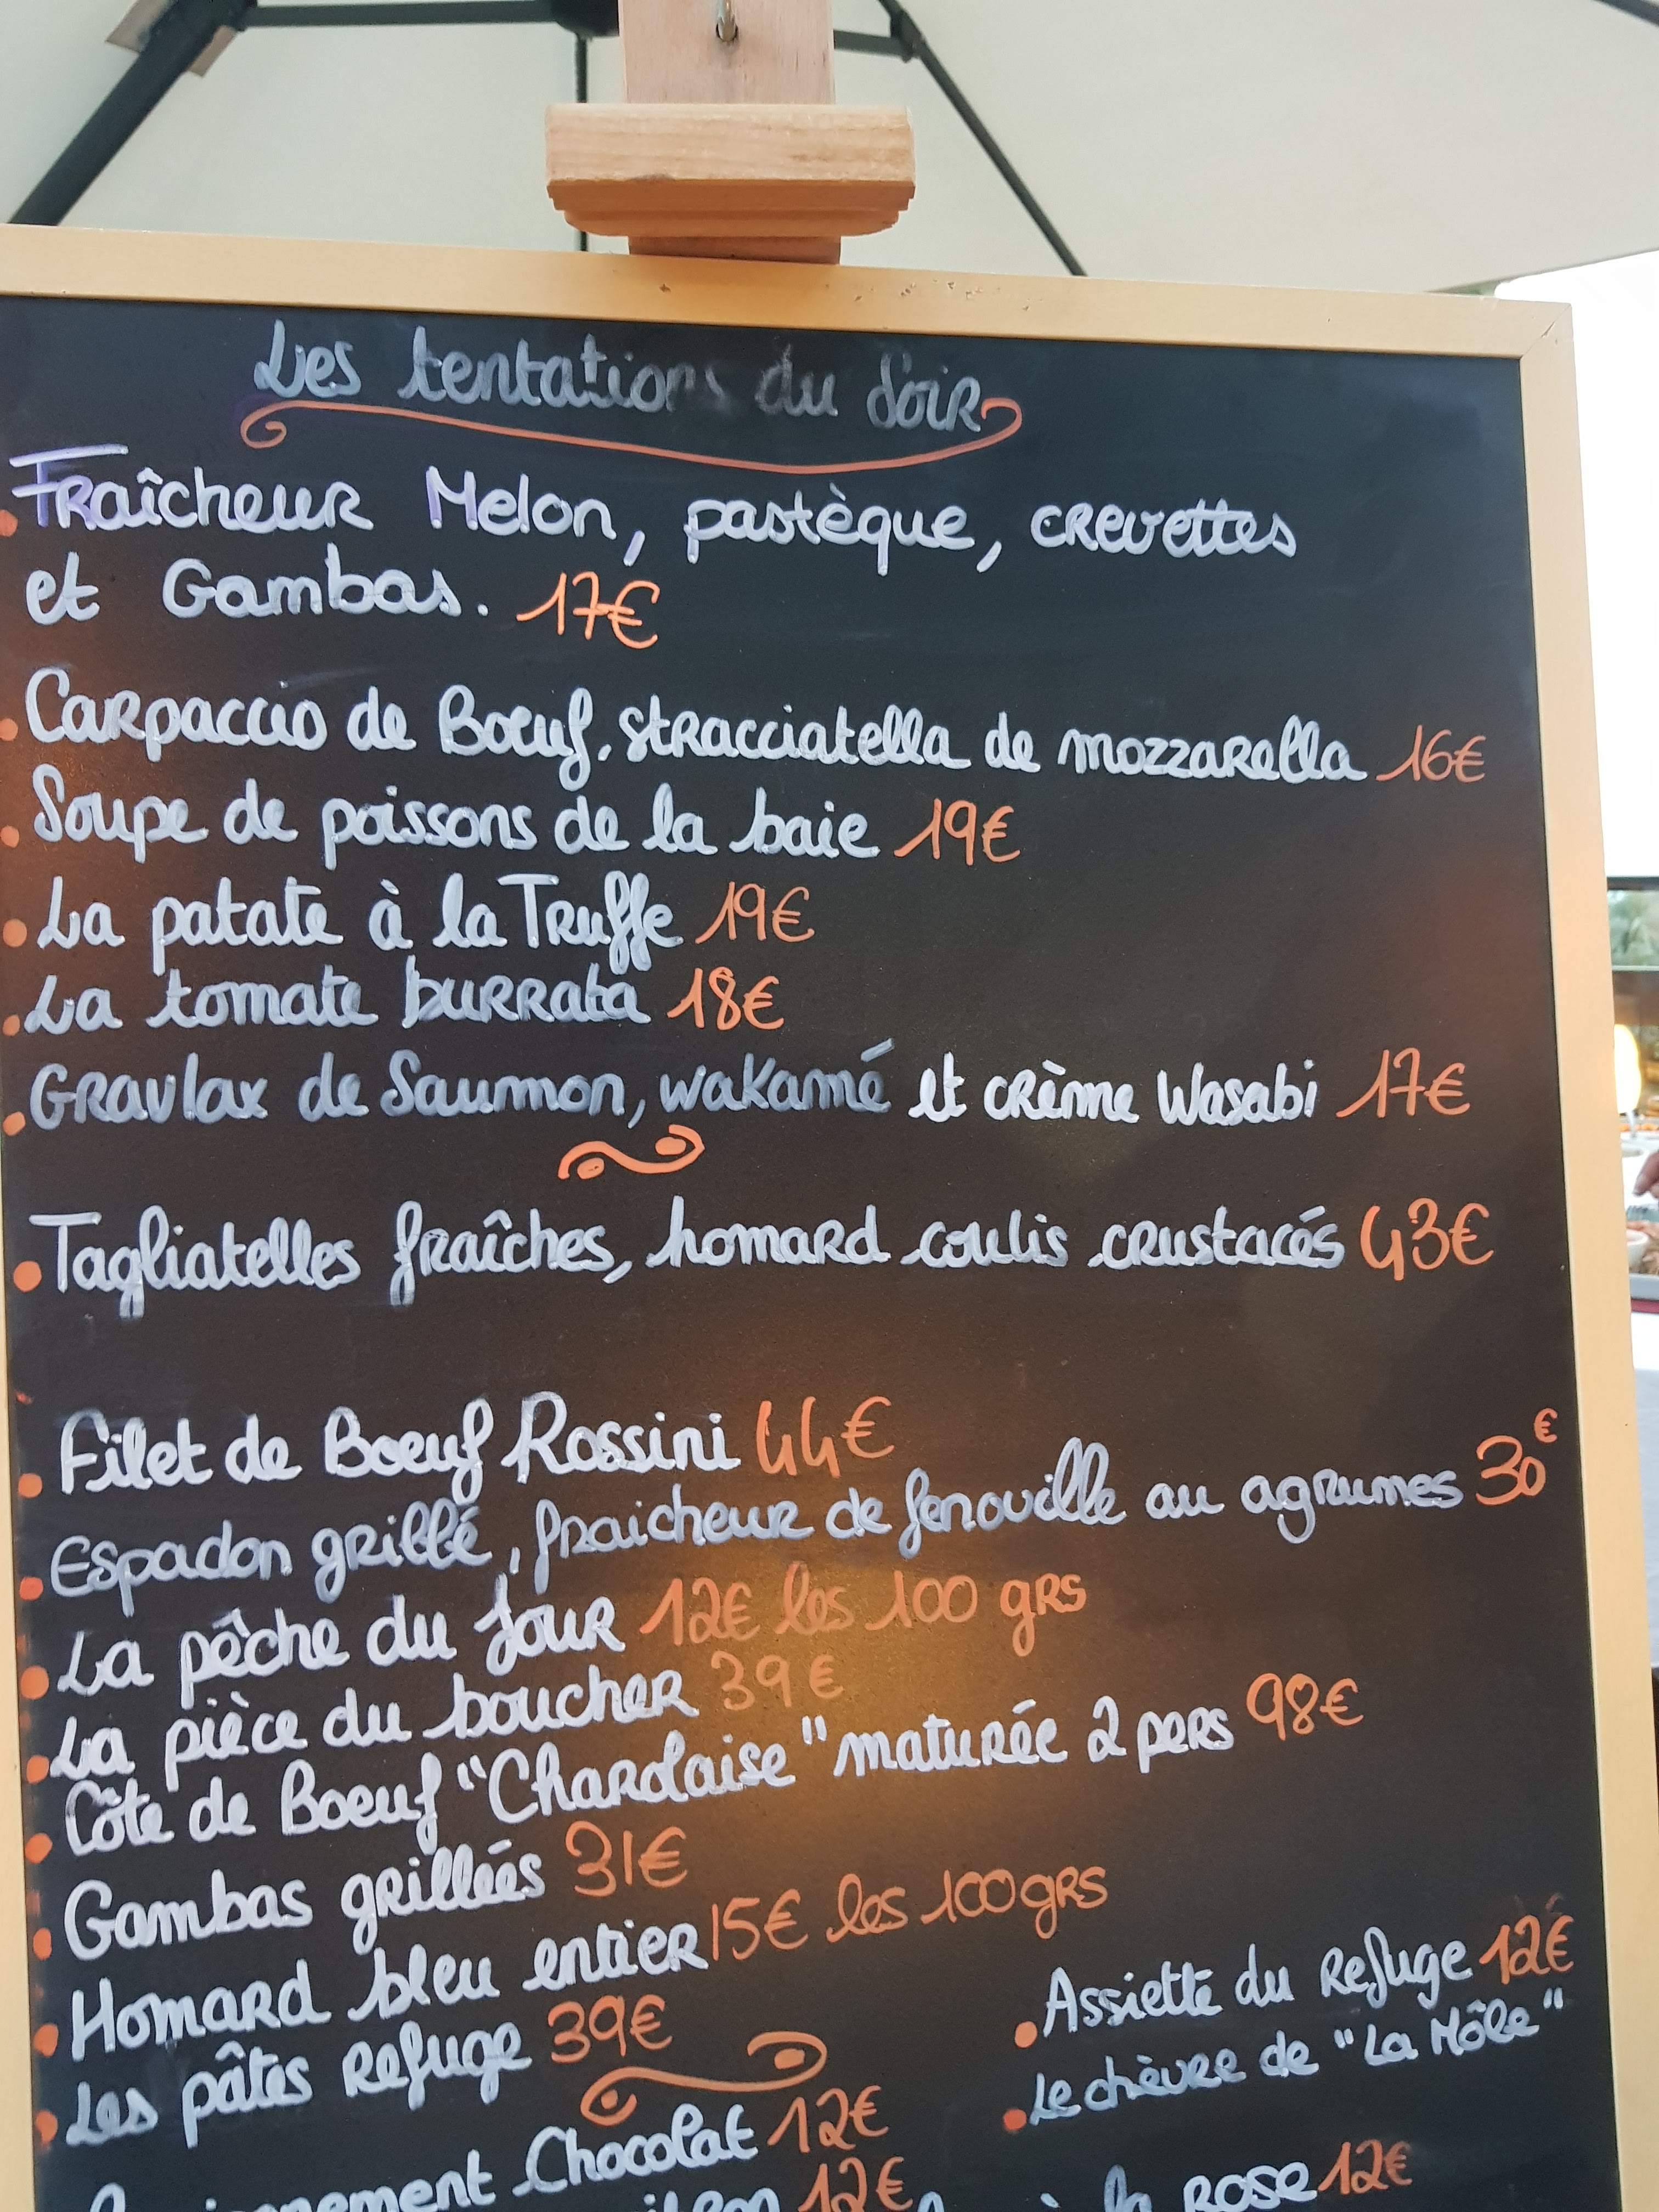 Les tentations du Soir
Fraîcheur Melon, pastèque, crevettes
et Gambas. 17€
Carpaccio de Boeuf, stracciatella de mozzarella 16€
Soupe de poissons de la baie 19€
La patate à la Truffe 19€
La tomate burrata 18€
Gravlax de Saumon, wakamé et crème Wasabi 17€
Tagliatelles fraîches, homard coulis crustacés 43€
Filet de Boeuf Rossini 44€
Espadon grillé, fraicheur de fenouille au agrumes 30€
La pêche du jour 12€ les 100 grs
La pièce du boucher 39€
Côte de Boeuf "Charolaise" maturée 2 pers 98€
Gambas grillées 31€
Homard bleu entier 15€ les 100grs
Les pâtes Refuge 39€
Assiette du Refuge 12€
Le chèvre de "La Môle"
Chocolat 12€
12€
la Rose 12€